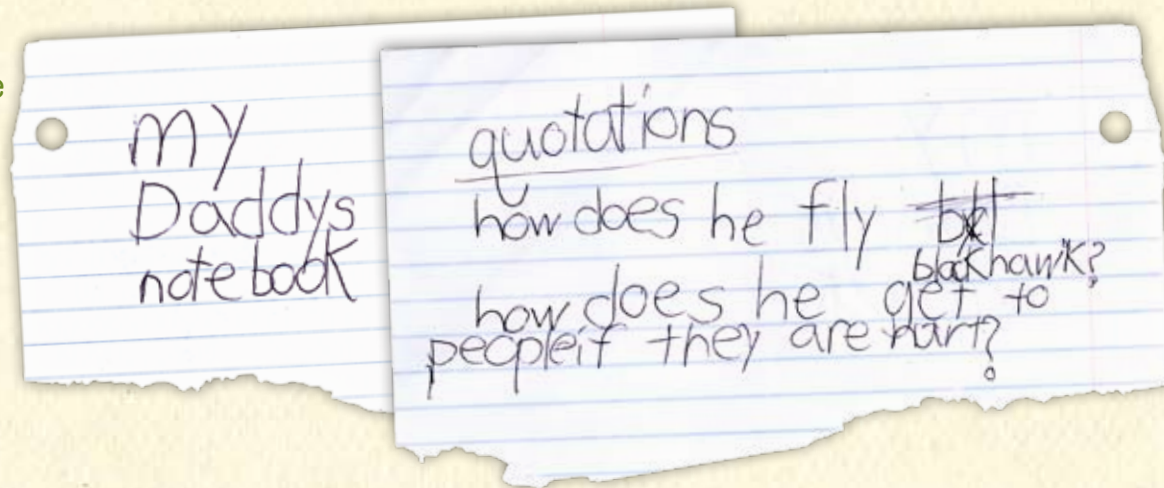 e
my
Daddys
notebook
quotations
how does he fly
blakhawk?
how does he get to
peopleif they are hart?